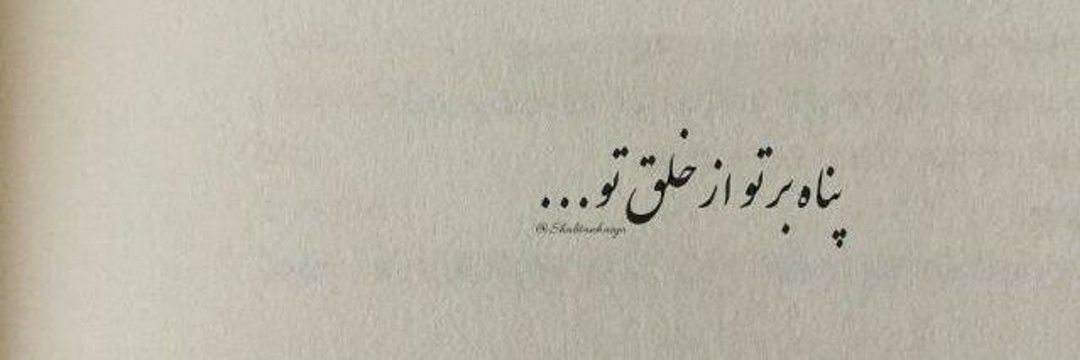 پناه بر تو از خلق تو...